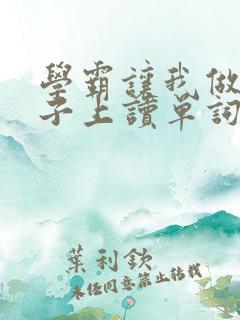 學霸讓我做
子上讀單詞
葉利欽
未經同意禁止轉載